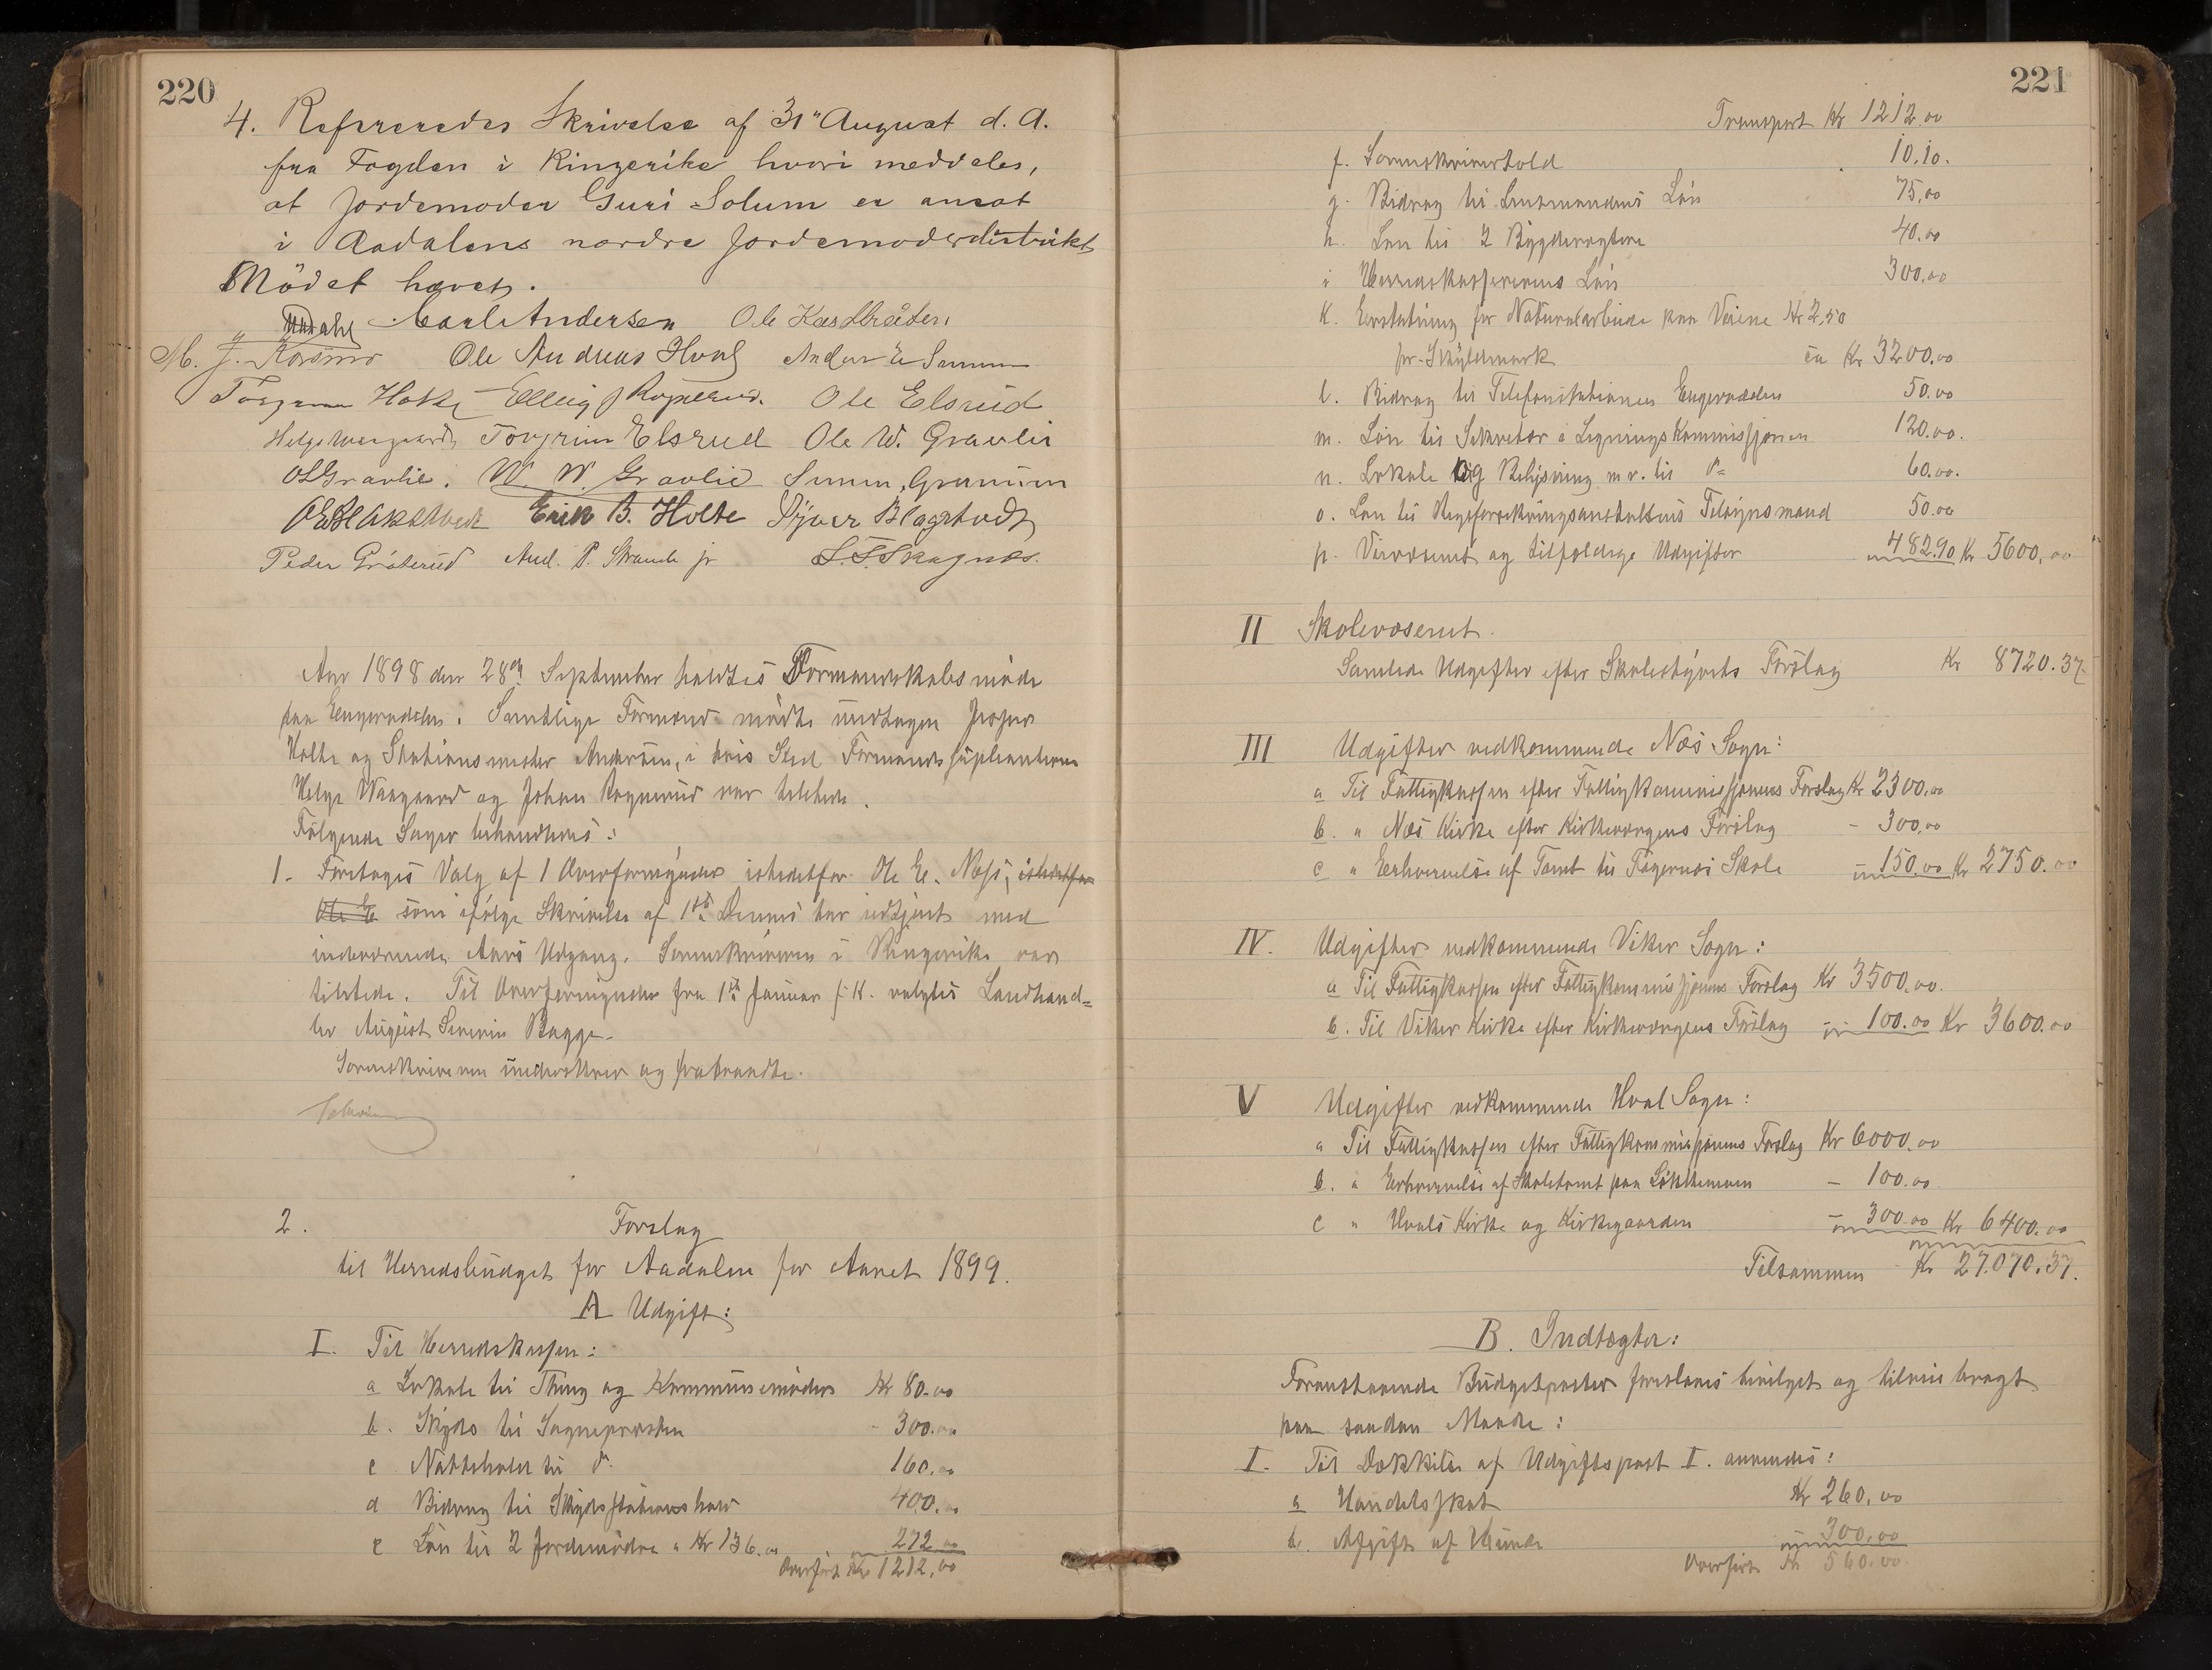 220
4. Refereredes Skrivelse af 31" August d. A.
fra Fogden i Ringerike hvori meddeles,
at Jordemoder Guri Solum er ansat
i Aadalens nordre Jordemoderdistrikt
Mödet hævet.
Carl Andersen Ole Kastbråten
M. J. Kosmo Ole Andreas Hval
Hotte Elling Ole Elsrud
Helge Torgrim Elsrud Ole W. Gravlie
O Gravlie. W. W. Gravlie
Erik B. Holte
Peder Gröterud And. P. Strande jr
Aar 1898 den 28de September holdtes Formandskabsmöde
paa Engeradelen. Samtlige Formænd mödte undtagen
Holte og Stationsmester Andersen, i hvis Sted Formandssuplianterne
Helge Waagaard og Johan var tilstede.
Fölgende Sager behandledes:
1. Foretoges Valg af 1 Overformynder istedetfor Ole E. Næss, istedetfor
Ole E som ifölge Skrivelse af 1ste Dennes har udtjent med
indeværende Aars Udgang. Sorenskriveren i Ringerike var
tilstede. Til Overformynder fra 1ste Januar f. K. valgtes Landhand=
ler August Severin Bagge.
Sorenskriveren underskrev og fratraadte.
2. Forslag
til Herredsbudget for Aadalen for Aaret 1899.
A Udgift:
I. Til Herredskassen:
a Lokale til Thing og Kommunemöder Kr 80.00
b. Skyds til Sognepresten - 300.00
c Nattehold til do 160.00
d Bidrag til Skydsstationshold 400.00
e Lön til 2 Jordmödre a Kr 136.00 272.00
Overfört Kr 1212.00
221
Transport Kr 1212.00
f. Sorenskrivertold 10.10.
g. Bidrag til Lensmandens Lön 75.00
h. Lön til 2 Bygdevægtere 40.00
i Herredskassererens Lön 300.00
k. Erstatning for Naturalarbeide paa Veiene Kr 2.50
pr. Skyldmark ca Kr. 3200.00
l. Bidrag til Telefonstationen Engeradelen 50.00
m. Lön til Sekretær i Ligningskommissjonen 120.00.
n. Lokale og Belysning m.v. til do 60.00.
o. Lön til Tilsynsmand 50.00
p. Veivæsenet og tilfældige Udgifter 482.90 Kr 5600.00
II Skolevæsenet.
Samlede Udgifter efter Skolestyrets Forslag Kr 8720.37
III Udgifter vedkommende Næs Sogn:
a Til Fattigkassen efter Fattigkommissjonens Forslag Kr 2300.00
b. " Næs Kirke efter Kirkeværgens Forslag - 300.00
c " Erhvervelse af Tomt til Fagernæs Skole 150.00 Kr 2750.00
IV. Udgifter vedkommende Viker Sogn:
a Til Fattigkassen efter Fattigkommissjonens Forslag Kr 3500.00.
b. Til Viker Kirke efter Kirkeværgens Forslag 100.00 Kr 3600.00
V Udgifter vedkommende Hval Sogn:
a Til Fattigkassen efter Fattigkommissjonens Forslag Kr 6000.00
b. " Erhvervelse af Skoletomt paa - 100.00
c " Hvals Kirke og Kirkegaarden 300.00 Kr 6400.00
Tilsammen Kr 27.070.37.
B. Indtægter:
Foranstaaende Budgetposter foreslaaes bevilget og tilveiebragt
paa saadan Maade:
I. Til Dækkelse af Udgiftspost I. anvendes:
a Handelsskat Kr 260.00
b. Afgift af Hunde 300.00
Overfört Kr 560.00